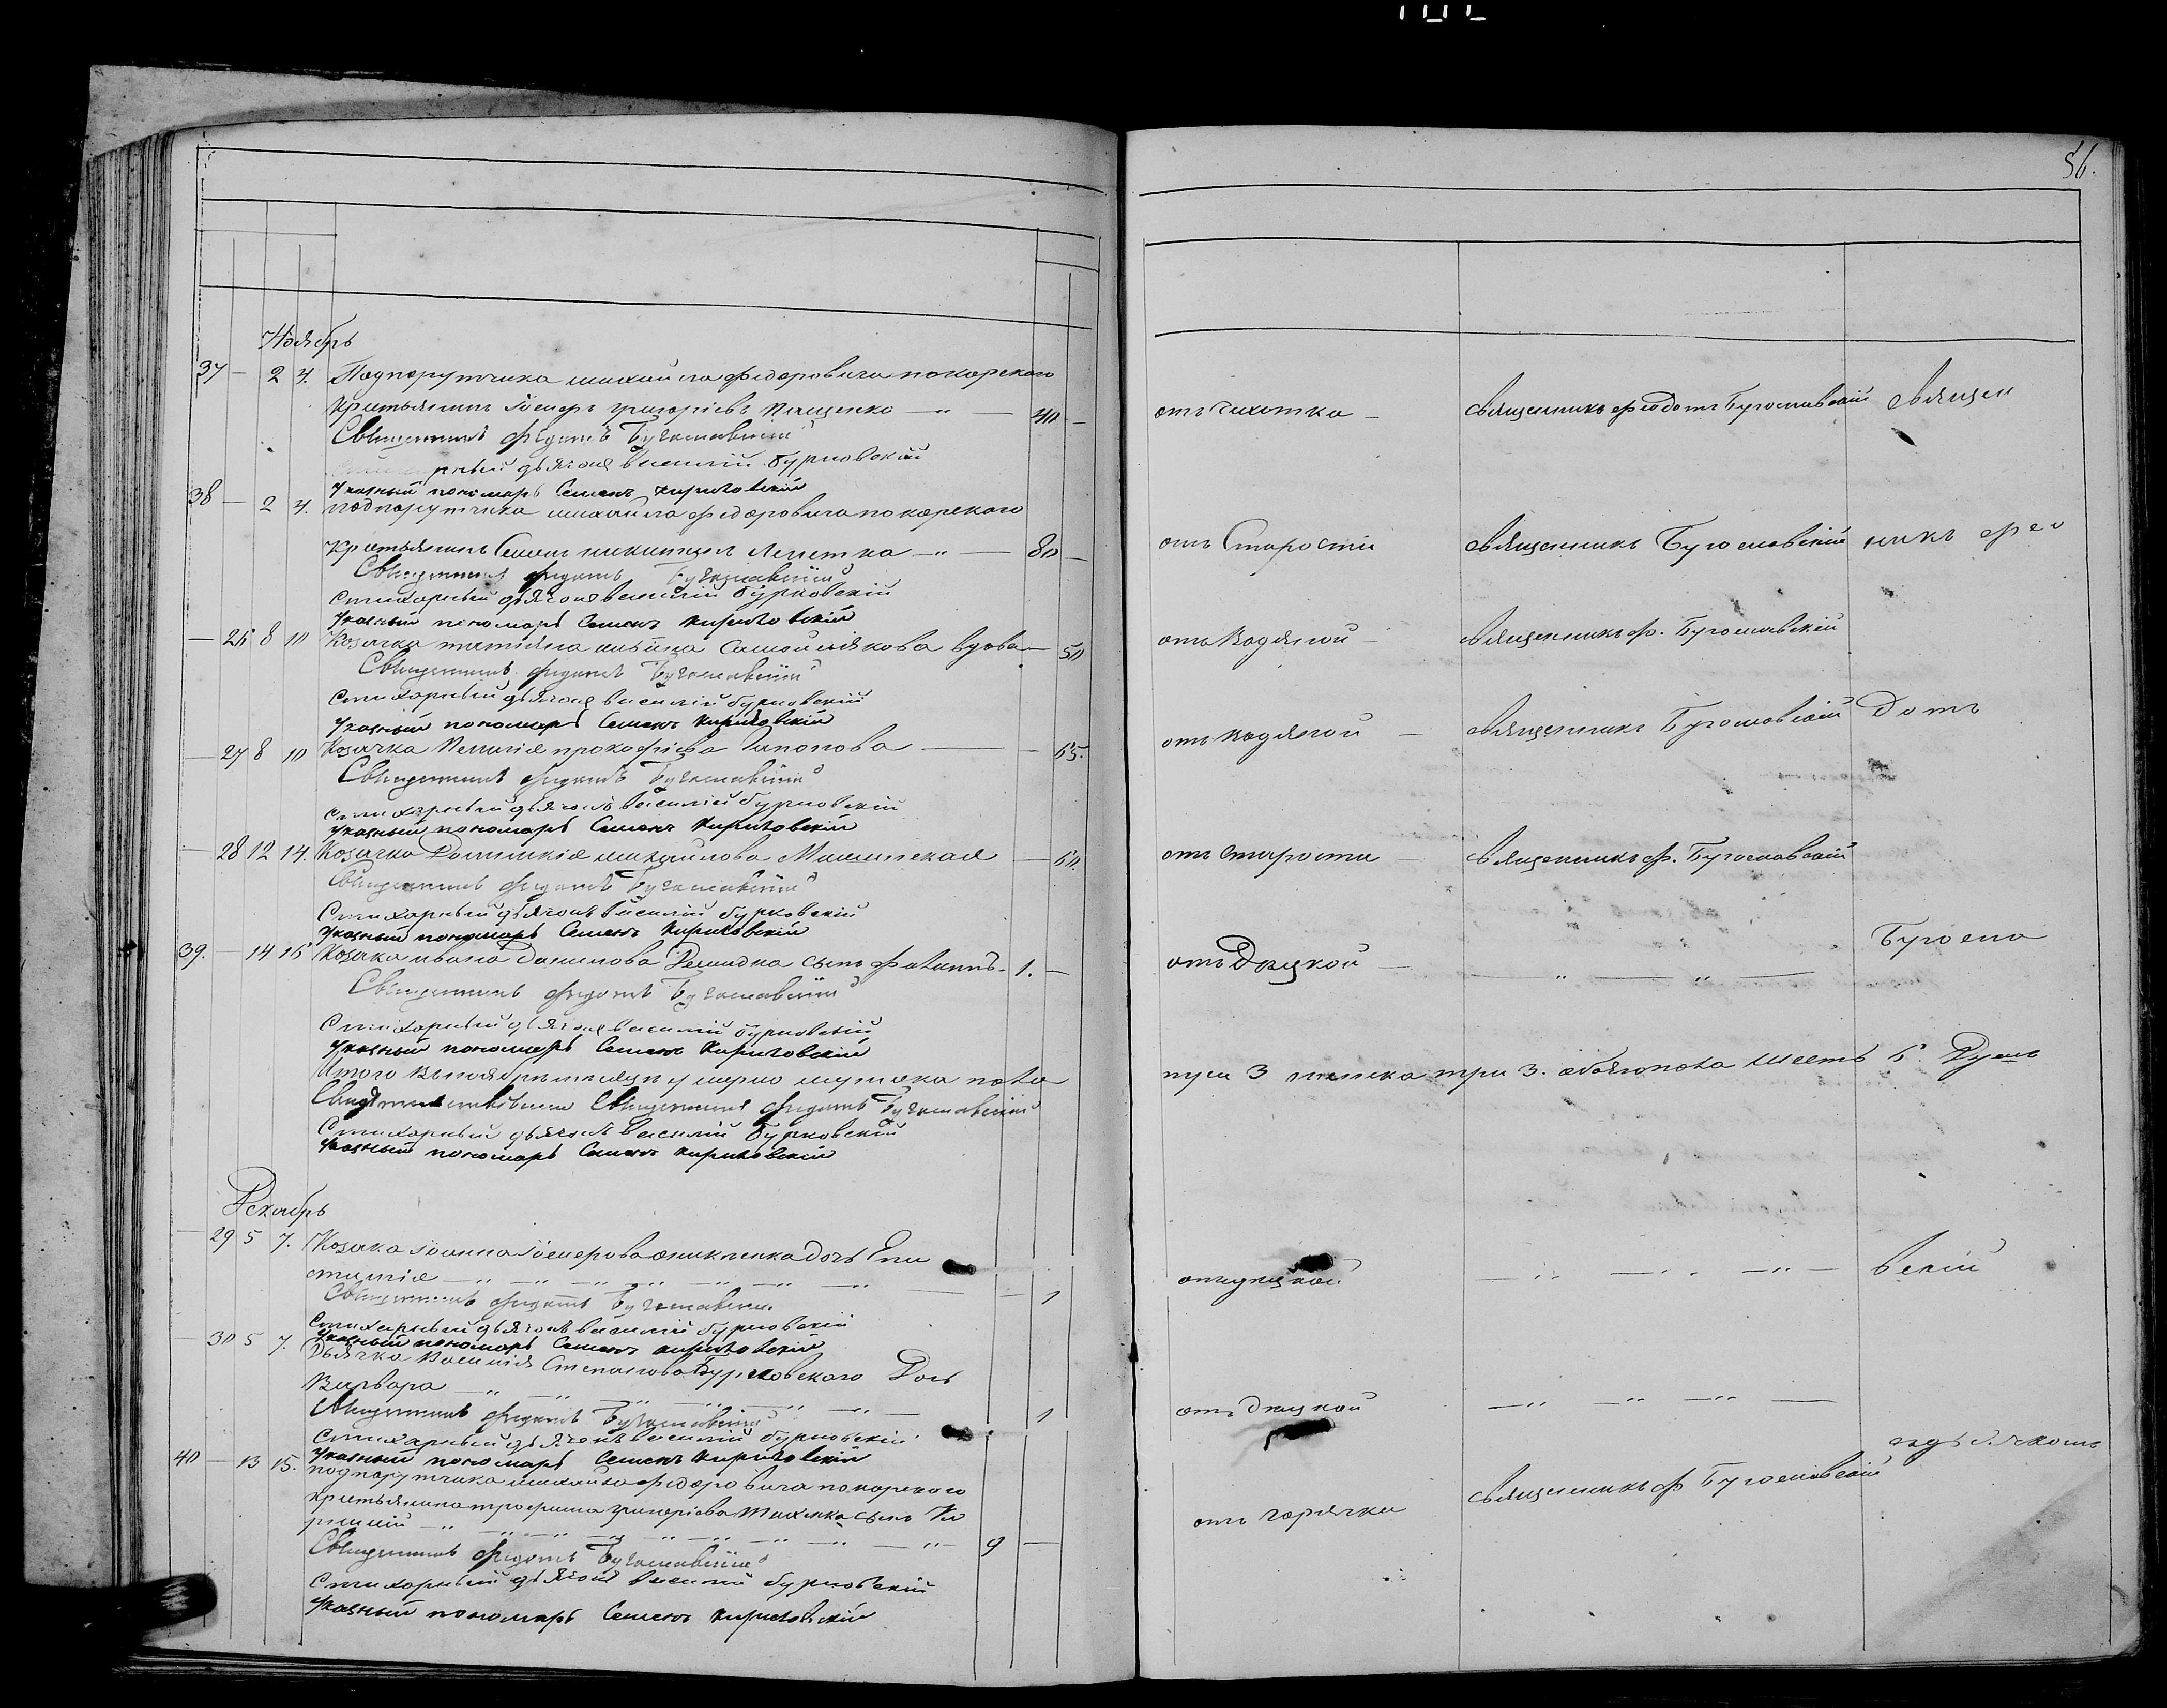 56.
Ноябрь
37 — 2 4. Подпорутчика михаила федоровича покорского
крестьянинъ Іосифъ григоріевъ Пащенко — 40 —
отъ чихотки — священникъ Феодотъ Бугославскій священ
Священникъ Федотъ Бугославскій
дьячокъ василій бурковскій
Указный пономарь Семенъ Кириловскій
38 — 2 4. подпорутчика михаила федоровича покорского
Крестьянинъ Семенъ никитинъ — 80 —
отъ Старости священникъ Бугославскій никъ Фео
Священникъ Федотъ Бугославскій
Стихарный дьячокъ василій бурковскій
Указный пономарь Семенъ Кириловскій
— 26 8 10 Козачка татіяна Самойлякова вдова — 50
отъ Водяной — священникъ Ф. Бугославскій
Священникъ Федотъ Бугославскій
Стихарный дьячокъ василій бурковскій
Указный пономарь Семенъ Кириловскій
— 27 8 10 Козачка Пелагія прокофіева Гапонова — 65.
отъ водяной — священникъ Бугославскій дотъ
Священникъ Федотъ Бугославскій
Стихарный дьячокъ василій бурковскій
Указный пономарь Семенъ Кириловскій
— 28 12 14. Козачка михайлова — 60.
отъ старости — священникъ Ф. Бугославскій
Священникъ Федотъ Бугославскій
Стихарный дьячокъ василій бурковскій
Указный пономарь Семенъ Кириловскій
39. — 14 16 Козака ивана Данилова Демидка сынъ — 1. —
отъ Дацкой — — „ — „ — Бугосла
Священникъ Федотъ Бугославскій
Стихарный дьячокъ василій бурковскій
Указный пономарь Семенъ Кириловскій
Итого въ ноябрѣ месяцѣ умерло мужска пола
три 3 женска три 3. обоего пола шесть 6. Душъ
Священникъ Федотъ Бугославскій
Стихарный дьячокъ василій бурковскій
Указный пономарь Семенъ Кириловскій
Декабрь
— 29 5 7. Козака Іоанна дочь Епи
стимія — 1
отъ дацкой — „ — „ — вскій
Священникъ Федотъ Бугославскій
Стихарный дьячокъ василій бурковскій
Указный пономарь Семенъ Кириловскій
— 30 5 7. Дьячка Василія Степанова Бурковского Дочь
Варвара — 1
отъ дацкой — „ — „ — „ —
Священникъ Федотъ Бугославскій
Стихарный дьячокъ василій бурковскій
Указный пономарь Семенъ Кириловскій
40 — 13 15. подпорутчика михаила федоровича покорского
крестьянина трофима григоріева сынъ Ки
рилій — 9 —
отъ горячки священникъ Ф Бугославскій
Священникъ Федотъ Бугославскій
Стихарный дьячокъ василій бурковскій
Указный пономарь Семенъ Кириловскій